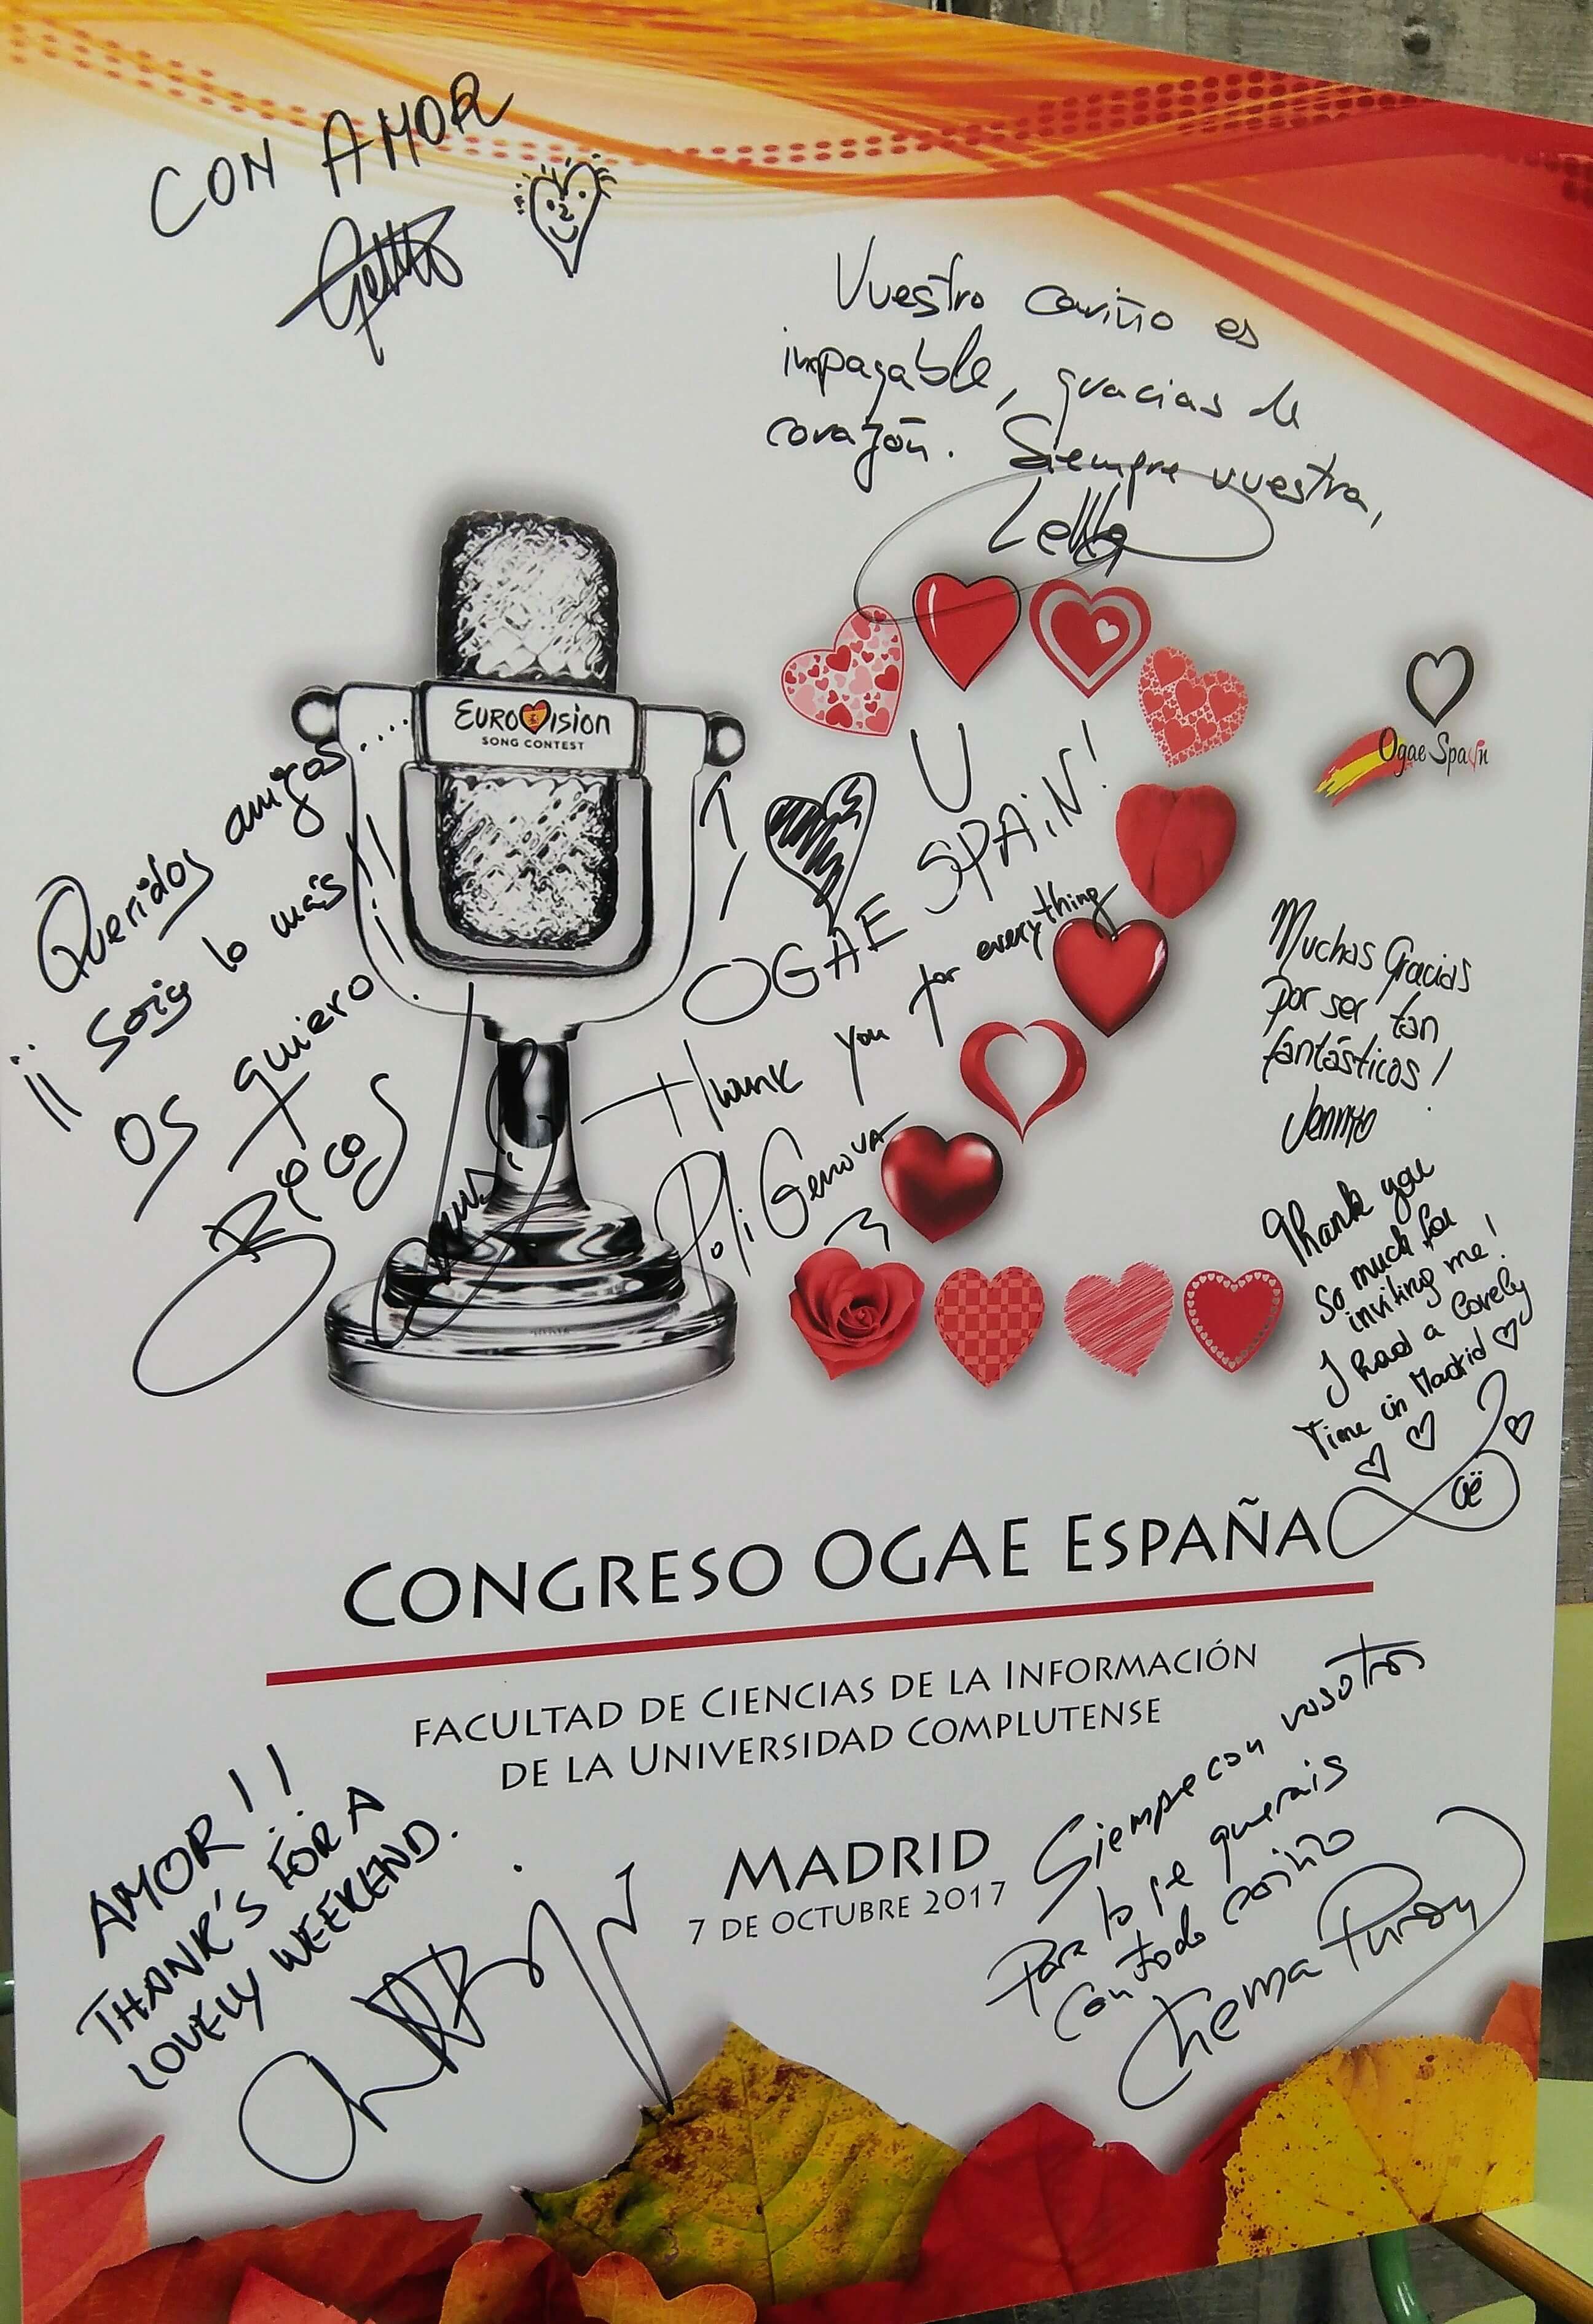 CON AMOR
Vuestro cariño es
impagable, gracias de
corazón. Siempre vuestra,
EUROVISION
SONG CONTEST
Ogae Spain
Queridos amigos....
¡¡ Sois lo más!!
OS quiero!
I
U
OGAE SPAiN!
thank you for everything
Poli Genova
Muchas Gracias
Por ser tan
fantásticos!
Thank you
so much for
inviting me!
I had a lovely
Time in Madrid
CONGRESO OGAE ESPAÑA
FACULTAD DE CIENCIAS DE LA INFORMACIÓN
DE LA UNIVERSIDAD COMPLUTENSE
MADRID
7 DE OCTUBRE 2017
AMOR!!
THANK'S FOR A
LOVELY WEEKEND.
Siempe con vosotros
Para lo qe querais
Con todo cariño
Chema Puron